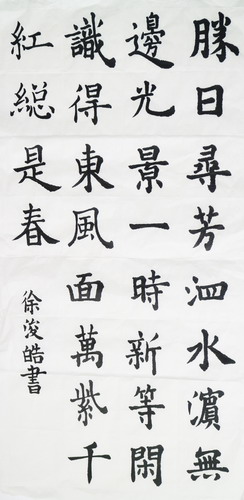 勝日尋芳泗水濵無
邊光景一時新等閑
識得東風面萬紫千
紅総是春
徐浚皓書